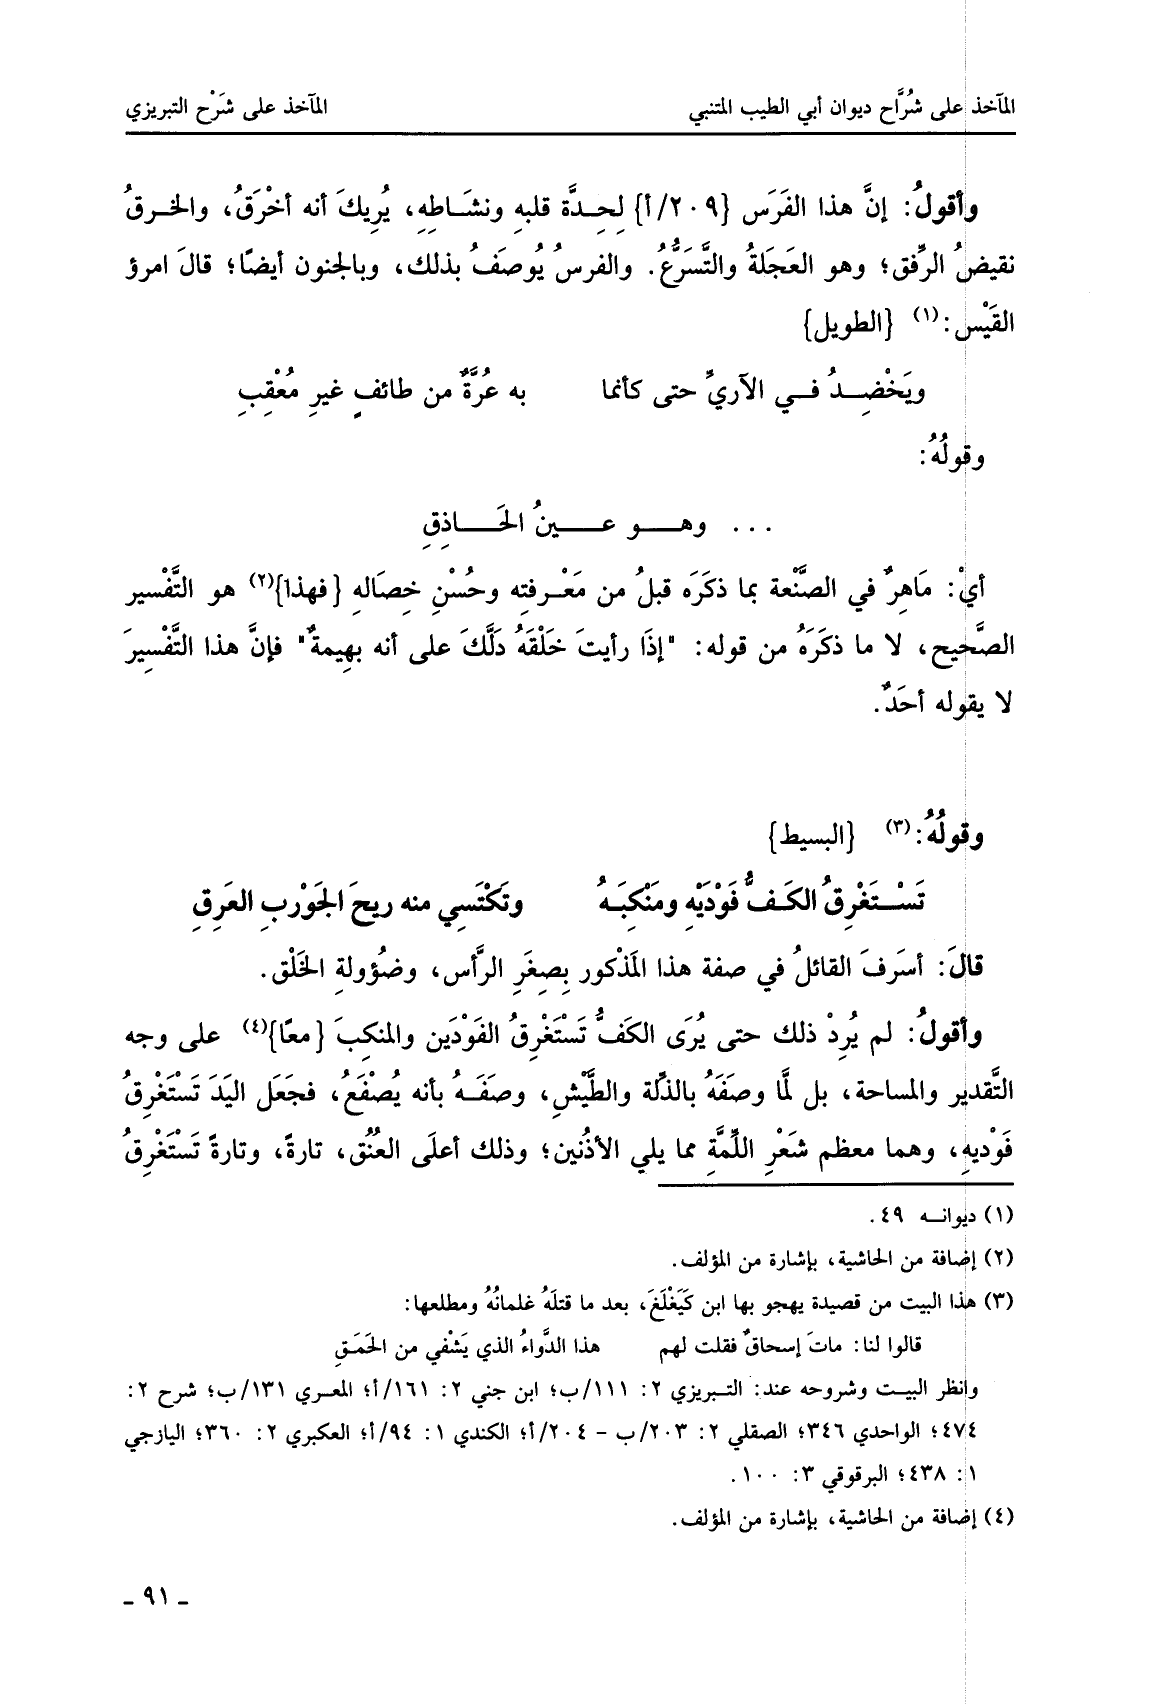 المآخذ على شُرَّاح ديوان أبي الطيب المتنبي المآخذ على شَرْح التبريزي
وأقولُ: إنَّ هذا الفَرَس {٢٠٩/أ} لِحِـدَّة قلبهِ ونشَـاطِهِ، يُريكَ أنه أخْرَقُ، والخـرقُ
نقيضُ الرِّفق؛ وهو العَجَلةُ والتَّسَرُّعُ. والفرسُ يُوصَفُ بذلك، وبالجنون أيضًا؛ قالَ امرؤ
القَيْسِ:(١) {الطويل}
ويَخْضِـدُ فـي الآريِّ حتى كأنما به عُرَّةٌ من طائفٍ غيرِ مُعْقِبِ
وقولُهُ:
... وهـــو عـــينُ الحَـــاذِقِ
أيْ: مَاهِرٌ في الصَّنْعة بما ذكَرَه قبلُ من مَعْـرفته وحُسْنِ خِصَالهِ {فهذا}(٢) هو التَّفْسير
الصَّحيح، لا ما ذكَرَهُ من قوله: "إذَا رأيتَ خَلْقَهُ دَلَّكَ على أنه بهِيمةٌ" فإنَّ هذا التَّفْسِيرَ
لا يقوله أحَدٌ.
وقولُهُ:(٣) {البسيط}
تَسْـتَغْرِقُ الكَـفُّ فَوْدَيْهِ ومَنْكِبَـهُ وتَكْتَسِي منه ريحَ الجَوْربِ العَرِقِ
قالَ: أسرَفَ القائلُ في صفة هذا المَذْكور بِصِغَرِ الرَّأس، وضُؤولةِ الخَلْق.
وأقولُ: لم يُردْ ذلك حتى يُرَى الكَفُّ تَسْتَغْرِقُ الفَوْدَين والمنكِبَ {معًا}(٤) على وجه
التَّقدير والمساحة، بل لمَّا وصَفَهُ بالذلّة والطَّيْشِ، وصَفَـهُ بأنه يُصْفَعُ، فجَعَل اليَدَ تَسْتَغْرِقُ
فَوْديهِ، وهما معظم شَعْرِ اللِّمَّةِ مما يلي الأذُنين؛ وذلك أعلَى العُنُق، تارةً، وتارةً تَسْتَغْرِقُ
(١) ديوانــه ٤٩.
(٢) إضافة من الحاشية، بإشارة من المؤلف.
(٣) هذا البيت من قصيدة يهجو بها ابن كَيَغْلَغَ، بعد ما قتلَهُ غلمانُهُ ومطلعها:
قالوا لنا: ماتَ إسحاقٌ فقلت لهم هذا الدَّواءُ الذي يَشْفي من الحَمَقِ
وانظر البيـت وشروحه عند: التـبريزي ٢: ١١١/ب؛ ابن جني ٢: ١٦١/أ؛ المعـري ١٣١/ب؛ شرح ٢:
٤٧٤؛ الواحدي ٣٤٦؛ الصقلي ٢: ٢٠٣/ب - ٢٠٤/أ؛ الكندي ١: ٩٤/أ؛ العكبري ٢: ٣٦٠؛ اليازجي
١: ٤٣٨؛ البرقوقي ٣: ١٠٠.
(٤) إضافة من الحاشية، بإشارة من المؤلف.
ـ ٩١ ـ